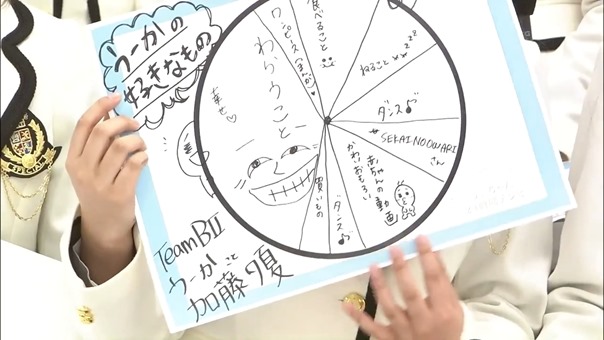 うーかの
好きなもの
わらうこと
幸せ♡
ワンピース(まんが)♡
食べること
ねること zzz
ダンス♪
SEKAI NO OWARI
さん
赤ちゃんの動画
かわいおもろい
ダンス♪
買いもの
TeamBII
うーかこと
加藤夕夏
SPECIAL